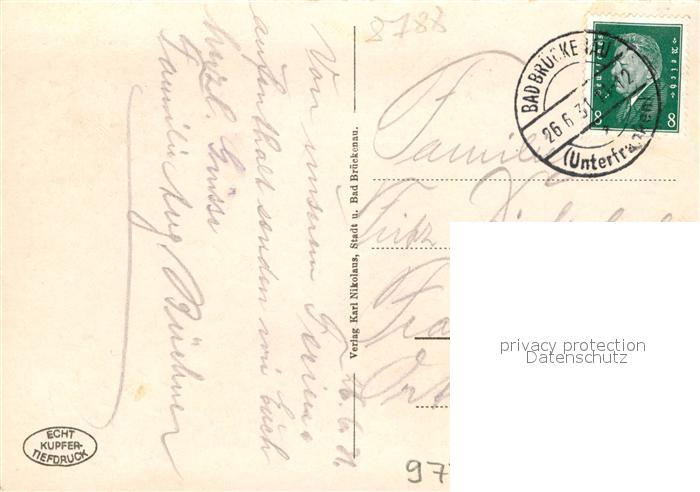 8788
26.6.31.
Von unserem Ferien-
aufenthalt senden wir Euch
herzl. Grüsse
Familie Aug. Büchner
Verlag Karl Nikolaus, Stadt u. Bad Brückenau.
ECHT
KUPFER-
TIEFDRUCK
BAD BRÜCKENAU
26.6.31
(Unterfranken)
Deutsches Reich
8 8
Familie
Fritz
privacy protection
Datenschutz